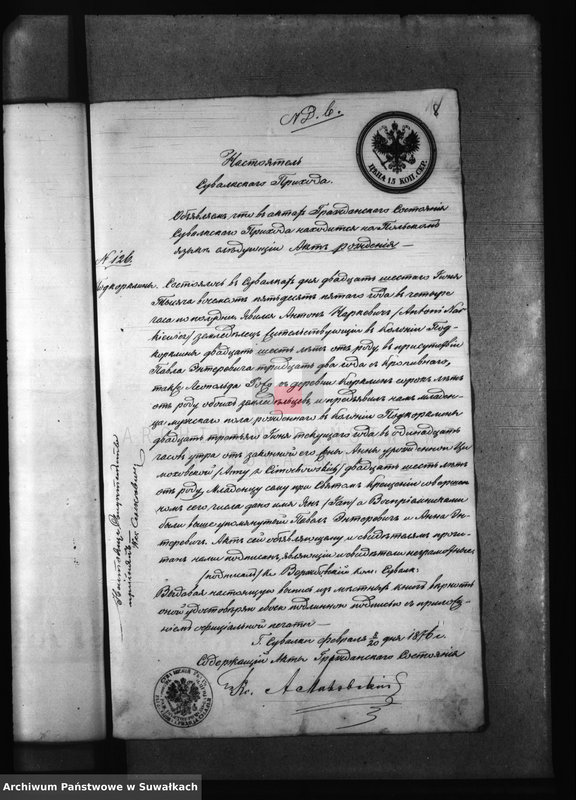 18
N В. 6.
ЦѢНА 15 КОП. СЕР.
Настоятель
Сувалкскаго Прихода.
Объявляю что въ актахъ Гражданскаго Состоянія
Сувалкскаго Прихода находится на Польскомъ
языкѣ слѣдующій Актъ рожденія —
N 126.
Подкоралина. Состоялось въ Сувалкахъ дня двадцать шестаго Іюня
Тысяча восемсотъ пятьдесятъ пятаго года въ четыре
часа по полудни. Явился Антонъ Наркевичъ /Antoni Nar-
kiewicz/ земледѣлецъ жительствующій въ Колоніи Под-
коралина двадцать шесть лѣтъ отъ роду, въ присутствіи
Павла Энтеровича тридцать два года съ
также Леопольда съ деревни сорокъ лѣтъ
отъ роду обоихъ земледѣльцевъ, и предъявилъ намъ младен-
ца мужескаго пола рожденнаго въ колоніи Подкоралина
двадцать третьяго Іюня текущаго года въ одинадцать
часовъ утра отъ законной его жены Анны урожденной Ци-
моховской /Anny z Cimochowskich/ двадцать шесть лѣтъ
отъ роду. Младенцу сему при Святомъ крещеніи совершен-
номъ сего числа дано имя Янъ /Jan/ а Воспріемниками
были выше упомянутый Павелъ Энтеровичъ и Анна Эн-
теровичъ. Актъ сей объявляющему и свидѣтелямъ прочи-
танъ нами подписанъ, являющій и свидѣтели неграмотные.
/подписалъ/ Кс. Воржбовскій Ком. Сувалк:
Выдавая настоящую выпись изъ мѣстныхъ книгъ вѣрность
оной удостовѣряю своею подлинною подписью съ приложе-
ніемъ оффиціальной печати —
Г. Сувалки Февраля 8/20 дня 1876 г.
Содержащій Акты Гражданскаго Состоянія
Кс. А Маковскій
Archiwum Państwowe w Suwałkach